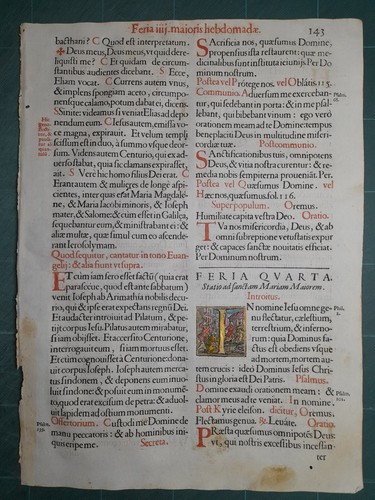 Feria iiij. maioris hebdomadæ. 143
bacthani? C Quod est interpretatum.
✠ Deus meus, Deus meus, vt quid dere-
liquisti me? C Et quidam de circum-
stantibus audientes dicebant. S Ecce,
Eliam vocat. C Currens autem vnus,
& implens spongiam aceto, circumpo-
nensque calamo, potum dabat ei, dicens.
S Sinite: videamus si veniat Elias ad depo-
nendum eum. C Iesus autem, emissa vo-
ce magna, expirauit. Et velum templi
scissum est in duo, à summo vsque deor-
sum. Videns autem Centurio, qui ex ad-
uerso stabat, quia sic clamans expirass-
et, ait. S Vere hic homo filius Dei erat. C
Erant autem & mulieres de longè aspi-
cientes, inter quas erat Maria Magdale-
ne, & Maria Iacobi minoris, & Ioseph
mater, & Salome: & cum esset in Galilea,
sequebantur eum, & ministrabant ei: &
aliæ multæ, quæ simul cum eo ascende-
rant Ierosolymam.
Quod sequitur, cantatur in tono Euan-
gelij: & alia fiunt vt supra.
ET cùm iam sero esset factū (quia erat
parasceue, quod est ante sabbatum)
venit Ioseph ab Arimathia nobilis decu-
rio, qui & ipse erat expectās regnū Dei.
Et audacter introiuit ad Pilatum, & peti-
it corpus Iesu. Pilatus autem mirabatur,
si iam obiisset. Et accersito Centurione,
interrogauit eum, si iam mortuus esset.
Et cùm cognouisset à Centurione: dona-
uit corpus Ioseph. Ioseph autem merca-
tus sindonem, & deponens eum inuol-
uit sindone: & posuit eum in monumē-
to, quod erat excisum de petra: & aduol-
uit lapidem ad ostium monumenti.
Offertorium. Custodi me Domine de
manu peccatoris: & ab hominibus ini-
quis eripe me. Secreta.
SAcrificia nos, quæsumus Domine,
propensius ista restaurent: quæ me-
dicinalibus sunt instituta ieiuniis. Per Do-
minum nostrum.
Postea vel Protege nos. vel Oblatis 115.
Communio. Aduersum me exerceban-
tur, qui sedebant in porta: & in me psal-
lebant, qui bibebant vinum: ego verò
orationem meam ad te Domine: tempus
beneplaciti Deus in multitudine miseri-
cordiæ tuæ. Postcommunio.
SAnctificationibus tuis, omnipotens
Deus, & vitia nostra curentur: & re-
media nobis sempiterna proueniāt. Per.
Postea vel Quæsumus Domine. vel
Hæc nos, quæsumus. fol. 116.
Super populum. Oremus.
Humiliate capita vestra Deo. Oratio.
TVa nos misericordia, Deus, & ab
omni subreptione vetustatis expur-
get: & capaces sanctæ nouitatis efficiat.
Per Dominum nostrum.
FERIA QVARTA.
Statio ad sanctam Mariam Maiorem.
Introitus.
IN nomine Iesu omne ge-
nu flectatur, cælestium,
terrestrium, & inferno-
rum: quia Dominus fa-
ctus est obediens vsque
ad mortem, mortem au-
tem crucis: ideo Dominus Iesus Chri-
stus in gloria est Dei Patris. Psalmus.
Domine exaudi orationem meam: & cla-
mor meus ad te veniat. In nomine.
Post Kyrie eleison. dicitur, Oremus.
Flectamus genua. ℟. Leuate. Oratio.
PRæsta quæsumus omnipotēs Deus:
vt, qui nostris excessibus incessan-
ter